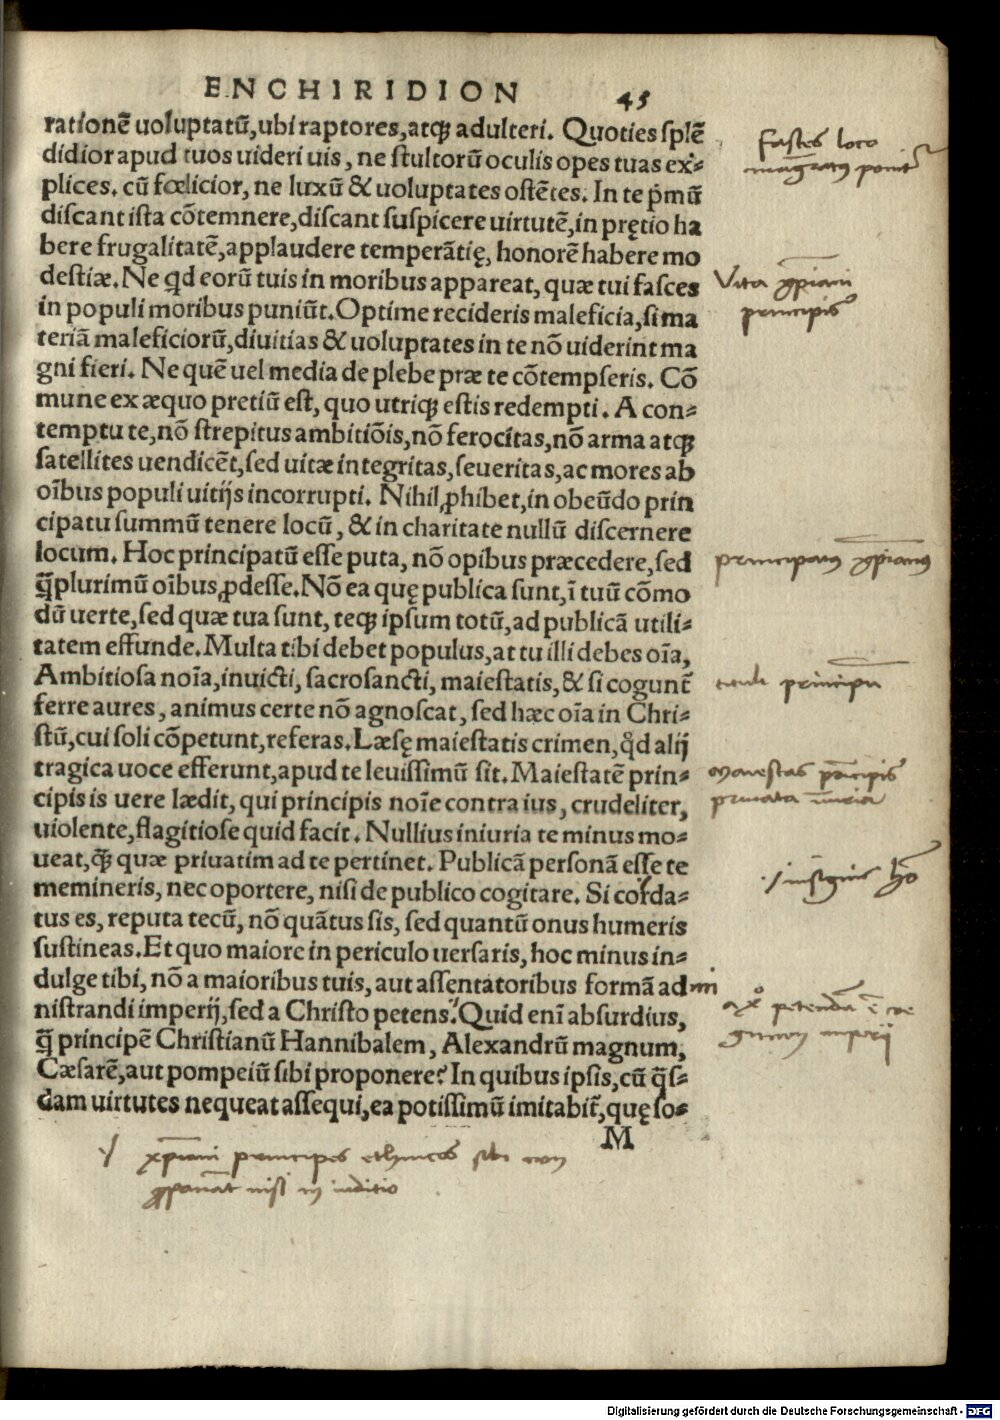 ENCHIRIDION
45
rationē uoluptatū, ubi raptores, atq; adulteri. Quoties splē
didior apud tuos uideri uis, ne stultorū oculis opes tuas ex⸗
plices. cū fœlicior, ne luxū & uoluptates ostētes. In te p̄mū
discant ista cōtemnere, discant suspicere uirtutē, in prętio ha
bere frugalitatē, applaudere temperātię, honorē habere mo
destiæ. Ne qd eorū tuis in moribus appareat, quæ tui fasces
in populi moribus puniūt. Optime recideris maleficia, si ma
teriā maleficiorū, diuitias & uoluptates in te nō uiderint ma
gni fieri. Ne quē uel media de plebe præ te cōtempseris. Cō
mune ex æquo pretiū est, quo utriq; estis redempti. A con⸗
temptu te, nō strepitus ambitiōis, nō ferocitas, nō arma atq;
satellites uendicēt, sed uitæ integritas, seueritas, ac mores ab
oībus populi uitijs incorrupti. Nihil ꝓhibet, in obeūdo prin
cipatu summū tenere locū, & in charitate nullū discernere
locum. Hoc principatū esse puta, nō opibus præcedere, sed
q̄plurimū oībus ꝓdesse. Nō ea quę publica sunt, ī tuū cōmo
dū uerte, sed quæ tua sunt, teq; ipsum totū, ad publicā utili⸗
tatem effunde. Multa tibi debet populus, at tu illi debes oīa,
Ambitiosa noīa, inuicti, sacrosancti, maiestatis, & si coguntˉ
ferre aures, animus certe nō agnoscat, sed hæc oīa in Chri⸗
stū, cui soli cōpetunt, referas. Læsę maiestatis crimen, qd̄ alij
tragica uoce efferunt, apud te leuissimū sit. Maiestatē prin⸗
cipis is uere lædit, qui principis noīe contra ius, crudeliter,
uiolente, flagitiose quid facit. Nullius iniuria te minus mo⸗
ueat, q̄ quæ priuatim ad te pertinet. Publicā personā esse te
memineris, nec oportere, nisi de publico cogitare. Si corda⸗
tus es, reputa tecū, nō quātus sis, sed quantū onus humeris
sustineas. Et quo maiore in periculo uersaris, hoc minus in⸗
dulge tibi, nō a maioribus tuis, aut assentatoribus formā ad⸗mi
nistrandi imperij, sed a Christo petens. Quid enī absurdius,
q̄ principē Christianū Hannibalem, Alexandrū magnum,
Cæsarē, aut pompeiū sibi proponere? In quibus ipsis, cū q̄s⸗
dam uirtutes nequeat assequi, ea potissimū imitabit̄, quę so⸗
M
fastes loco
ponit
Vita xp̄iani
principis
principatus xp̄ianus
tituli principū
Maiestas principis
priuata iniuria
petenda ē
imperij
xp̄iani principes ethnicos sibi non
nisi in